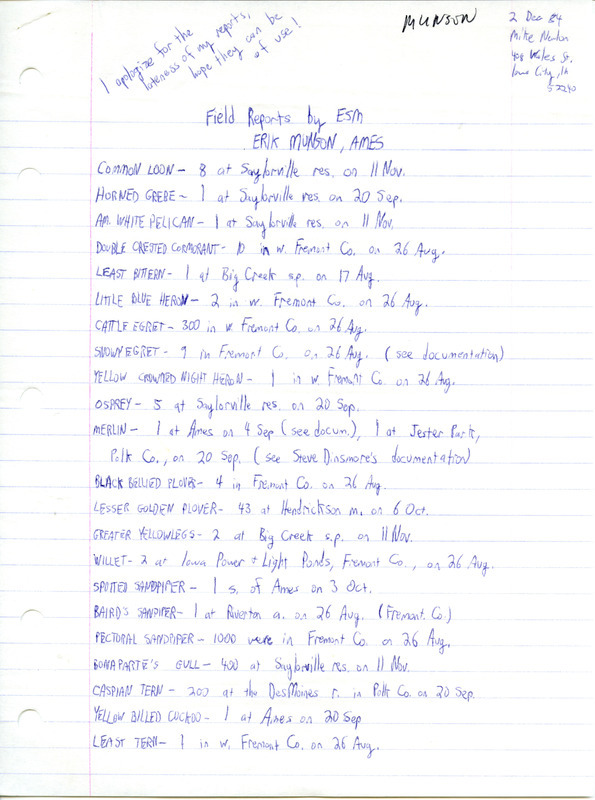 I apologize for the
lateness of my reports,
hope they can be
of use!
MUNSON
2 Dec 84
Mike Newlon
408 Wales St.
Iowa City, IA
52240
Field Reports by ESM
ERIK MUNSON, AMES
COMMON LOON - 8 at Saylorville res. on 11 Nov.
HORNED GREBE - 1 at Saylorville res. on 20 Sep.
AM. WHITE PELICAN - 1 at Saylorville res. on 11 Nov.
DOUBLE CRESTED CORMORANT - 10 in w. Fremont Co. on 26 Aug.
LEAST BITTERN - 1 at Big Creek s.p. on 17 Aug.
LITTLE BLUE HERON - 2 in w. Fremont Co. on 26 Aug.
CATTLE EGRET - 300 in w. Fremont Co. on 26 Aug.
SNOWY EGRET - 9 in Fremont Co. on 26 Aug. (see documentation)
YELLOW CROWNED NIGHT HERON - 1 in w. Fremont Co. on 26 Aug.
OSPREY - 5 at Saylorville res. on 20 Sep.
MERLIN - 1 at Ames on 4 Sep (see docum.), 1 at Jester Park,
Polk Co., on 20 Sep. (see Steve Dinsmore's documentation)
BLACK BELLIED PLOVER - 4 in Fremont Co. on 26 Aug.
LESSER GOLDEN PLOVER - 43 at Hendrickson m. on 6 Oct.
GREATER YELLOWLEGS - 2 at Big Creek s.p. on 11 Nov.
WILLET - 2 at Iowa Power + Light Ponds, Fremont Co., on 26 Aug.
SPOTTED SANDPIPER - 1 s. of Ames on 3 Oct.
BAIRD'S SANDPIPER - 1 at Riverton a. on 26 Aug. (Fremont. Co.)
PECTORAL SANDPIPER - 1000 were in Fremont Co. on 26 Aug.
BONAPARTE'S GULL - 400 at Saylorville res. on 11 Nov.
CASPIAN TERN - 200 at the DesMoines r. in Polk Co. on 20 Sep.
YELLOW BILLED CUCKOO - 1 at Ames on 20 Sep
LEAST TERN - 1 in w. Fremont Co. on 26 Aug.